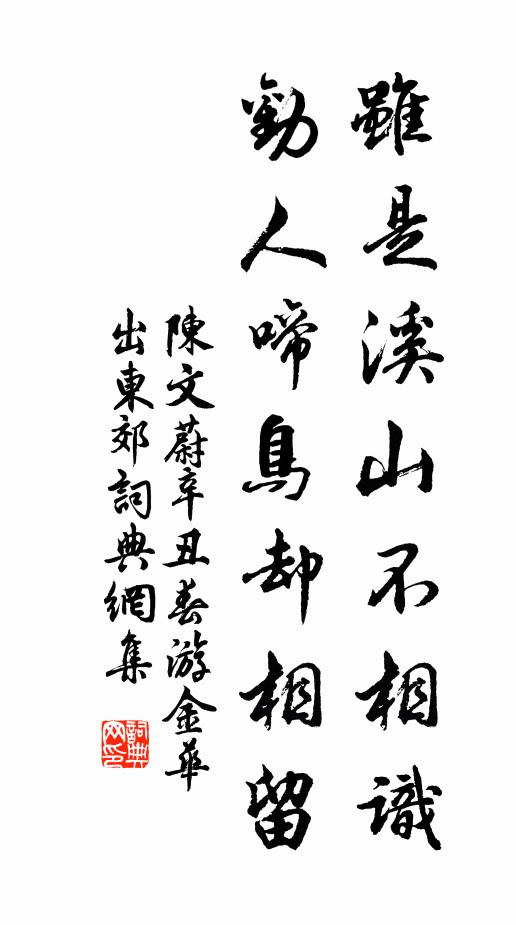 雖是溪山不相識
勸人啼鳥却相留
陳文蔚辛丑春游金華
出東郊詞典網集
詞典
网印